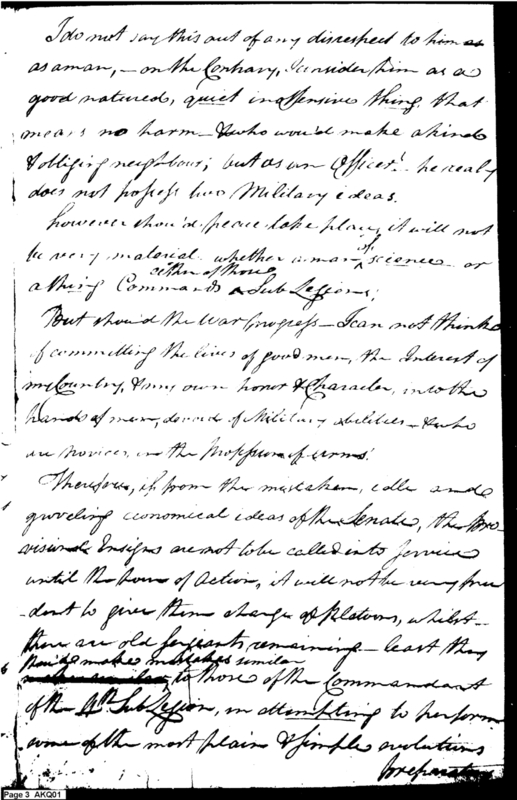 I do not say this out of any disrespect to him as
as a man, – on the Contrary, I consider him as a
good natured, quiet inoffensive thing that
means no harm – & who wou'd make a kind
& obliging neighbour; but as an Officer! he realy
does not possess two Military ideas.
however shou'd peace take place, it will not
be very material whether a man of science or
either of those
a thing Commands Sub Legions;
But shou'd the War progress – I can not think
of committing the lives of good men, the Interest of
my Country, & my own honor & Character, into the
hands of men, devoid of Military abilities – & who
are novices in the Profession of arms!
Therefore, if from the mistaken, idle and
groveling economical ideas of the Senate, the Pro
visional Ensigns are not to be called into service
until the hour of Action, it will not be very pru
dent to give them charge of Platoons, whilst
there are old Sergeants remaining – least they
shou'd make mistakes similar
to those of the Commandant
of the 4th Sub Legion, in attempting to perform
some of the most plain & simple evolutions
preparatory
Page 3 AKQ01